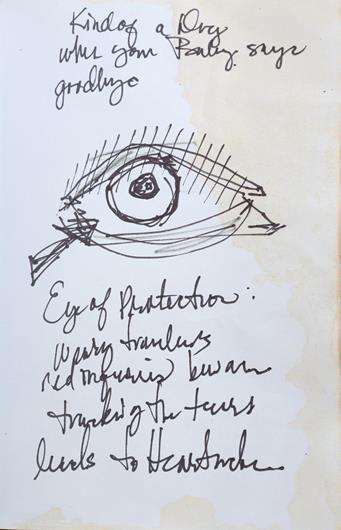 Kind of a Dog
when your Poetry says
goodbye
Eye of Protection:
weary travelers
beware
tracking the tears
leads to Heartache